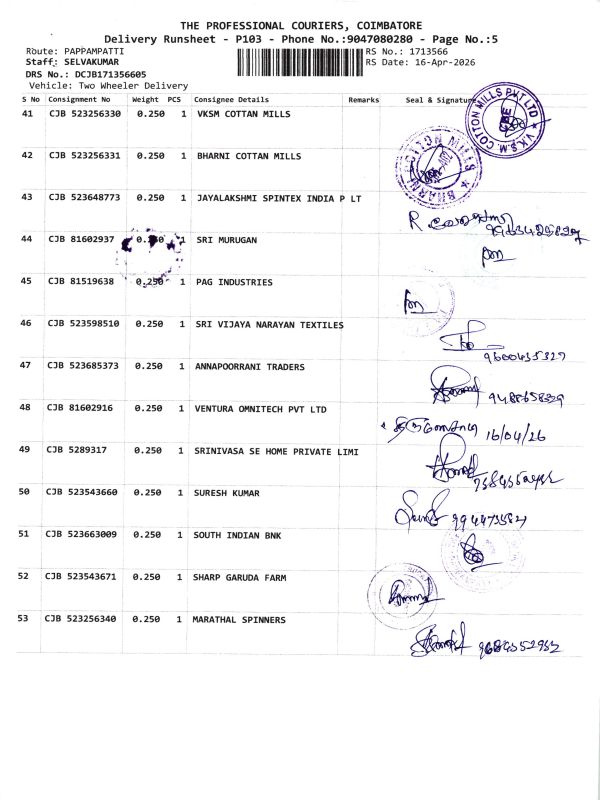 THE PROFESSIONAL COURIERS, COIMBATORE
Delivery Runsheet - P103 - Phone No.:9047080280 - Page No.:5
Route: PAPPAMPATTI
RS No.: 1713566
Staff: SELVAKUMAR
RS Date: 16-Apr-2026
DRS No.: DCJB171356605
Vehicle: Two Wheeler Delivery
S No Consignment No Weight PCS Consignee Details Remarks Seal & Signature
41 CJB 523256330 0.250 1 VKSM COTTAN MILLS
V.K.S.M. COTTON MILLS PVT LTD
42 CJB 523256331 0.250 1 BHARNI COTTAN MILLS
COTTON MILLS
43 CJB 523648773 0.250 1 JAYALAKSHMI SPINTEX INDIA P LT
R
44 CJB 81602937 0.250 1 SRI MURUGAN
45 CJB 81519638 0.250 1 PAG INDUSTRIES
46 CJB 523598510 0.250 1 SRI VIJAYA NARAYAN TEXTILES
9600435329
47 CJB 523685373 0.250 1 ANNAPOORRANI TRADERS
48 CJB 81602916 0.250 1 VENTURA OMNITECH PVT LTD
16/04/26
49 CJB 5289317 0.250 1 SRINIVASA SE HOME PRIVATE LIMI
50 CJB 523543660 0.250 1 SURESH KUMAR
51 CJB 523663009 0.250 1 SOUTH INDIAN BNK
52 CJB 523543671 0.250 1 SHARP GARUDA FARM
53 CJB 523256340 0.250 1 MARATHAL SPINNERS